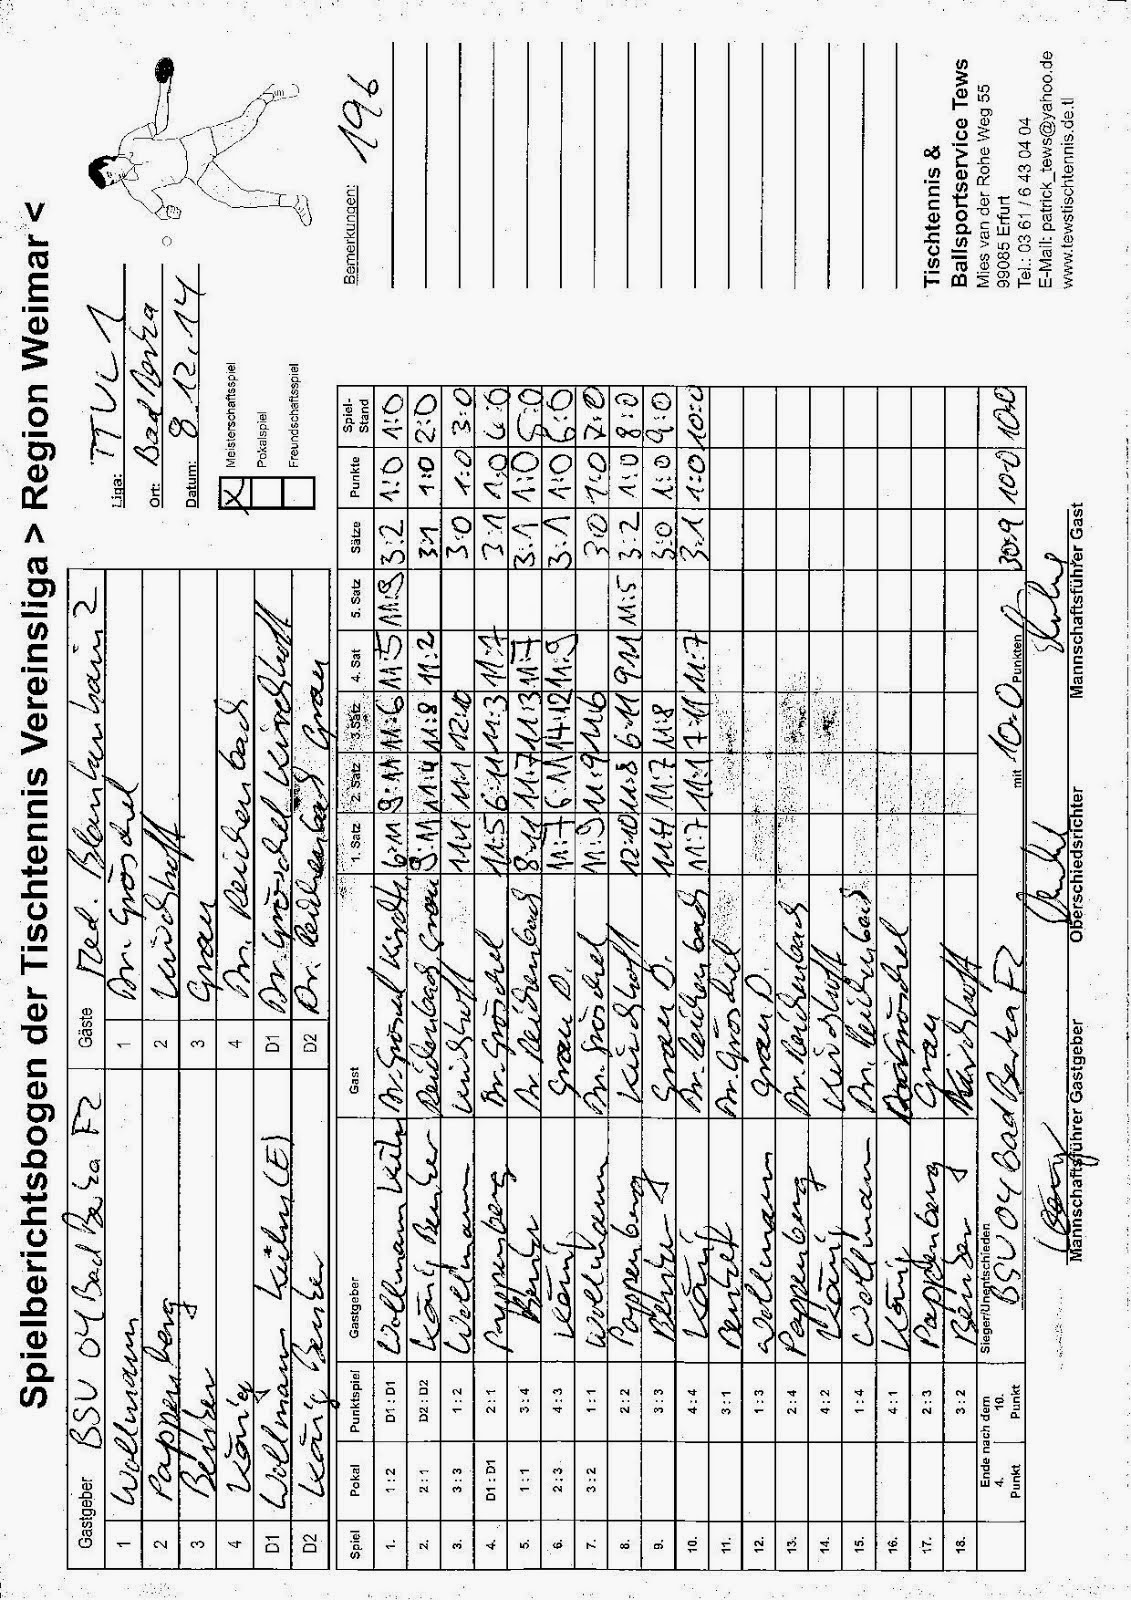 Spielberichtsbogen der Tischtennis Vereinsliga > Region Weimar <
Gastgeber BSV 04 Bad Berka F2 Gäste Med. Blankenhain 2
1 Wollmann 1 Dr. Gröschel
2 Pappenberg 2 Kirchhoff
3 Benker 3 Grau
4 König 4 Dr. Reichenbach
D1 Wollmann Kühn (E) D1 Dr. Gröschel Kirchhoff
D2 König Benker D2 Dr. Reichenbach Grau
Liga: TTVL 1
Ort: Bad Berka
Datum: 8.12.14
X Meisterschaftsspiel
Pokalspiel
Freundschaftsspiel
Spiel Pokal Punktspiel Gastgeber Gast 1. Satz 2. Satz 3. Satz 4. Sat 5. Satz Sätze Punkte Spiel-Stand
1. 1 : 2 D1 : D1 Wollmann Kühn Dr. Gröschel Kirchh. 6:11 9:11 11:6 11:5 11:9 3:2 1:0 1:0
2. 2 : 1 D2 : D2 König Benker Reichenbach Grau 9:11 11:4 11:8 11:2 3:1 1:0 2:0
3. 3 : 3 1 : 2 Wollmann Kirchhoff 11:1 11:1 12:10 3:0 1:0 3:0
4. D1 : D1 2 : 1 Pappenberg Dr. Gröschel 11:5 6:11 11:3 11:7 3:1 1:0 4:0
5. 1 : 1 3 : 4 Benker Dr. Reichenbach 8:11 11:7 11:3 11:7 3:1 1:0 5:0
6. 2 : 3 4 : 3 König Grau D. 11:7 6:11 14:12 11:9 3:1 1:0 6:0
7. 3 : 2 1 : 1 Wollmann Dr. Gröschel 11:9 11:9 11:6 3:0 1:0 7:0
8. 2 : 2 Pappenberg Kirchhoff 12:10 11:8 6:11 9:11 11:5 3:2 1:0 8:0
9. 3 : 3 Benker Grau D. 11:4 11:7 11:8 3:0 1:0 9:0
10. 4 : 4 König Dr. Reichenbach 11:7 11:1 7:11 11:7 3:1 1:0 10:0
11. 3 : 1 Benker Dr. Gröschel
12. 1 : 3 Wollmann Grau D.
13. 2 : 4 Pappenberg Dr. Reichenbach
14. 4 : 2 König Kirchhoff
15. 1 : 4 Wollmann Dr. Reichenbach
16. 4 : 1 König Gröschel
17. 2 : 3 Pappenberg Grau
18. 3 : 2 Benker Kirchhoff
Ende nach dem
4. Punkt 10. Punkt
Sieger/Unentschieden BSV 04 Bad Berka F2 mit 10:0 Punkten 30:9 10:0 10:0
Mannschaftsführer Gastgeber Oberschiedsrichter Mannschaftsführer Gast
Bemerkungen: 196
Tischtennis &
Ballsportservice Tews
Mies van der Rohe Weg 55
99085 Erfurt
Tel.: 03 61 / 6 43 04 04
E-Mail: patrick_tews@yahoo.de
www.tewstischtennis.de.tl